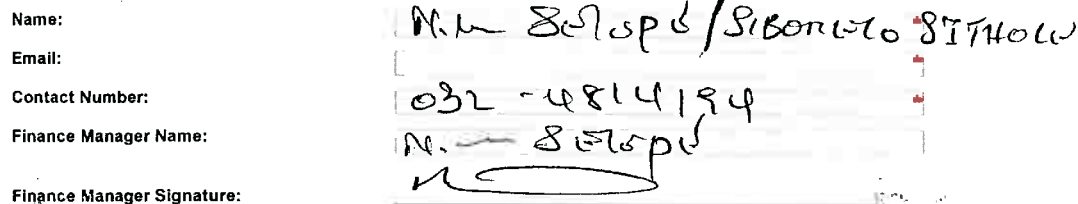 Name: N.M Setopé / SIBONELO SITHOLE
Email:
Contact Number: 032 - 4814194
Finance Manager Name: N. Setopé
Finance Manager Signature: